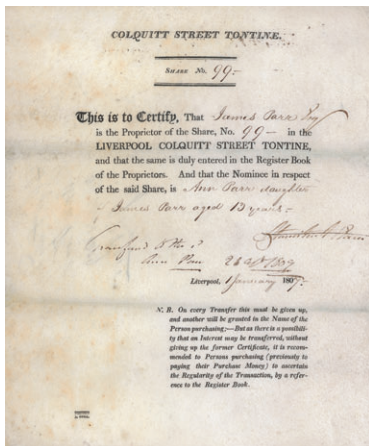 COLQUITT STREET TONTINE.
SHARE No. 99-
This is to Certify, That James Parr Esq
is the Proprietor of the Share, No. 99 — in the
LIVERPOOL COLQUITT STREET TONTINE,
and that the same is duly entered in the Register Book
of the Proprietors. And that the Nominee in respect
of the said Share, is Ann Parr daughter
James Parr aged 13 years -
Ann Parr
Liverpool, 1 January 180
N. B. On every Transfer this must be given up,
and another will be granted in the Name of the
Person purchasing;—But as there is a possibili-
ty that an Interest may be transferred, without
giving up the former Certificate, it is recom-
mended to Persons purchasing (previously to
paying their Purchase Money) to ascertain
the Regularity of the Transaction, by a refer-
ence to the Register Book.